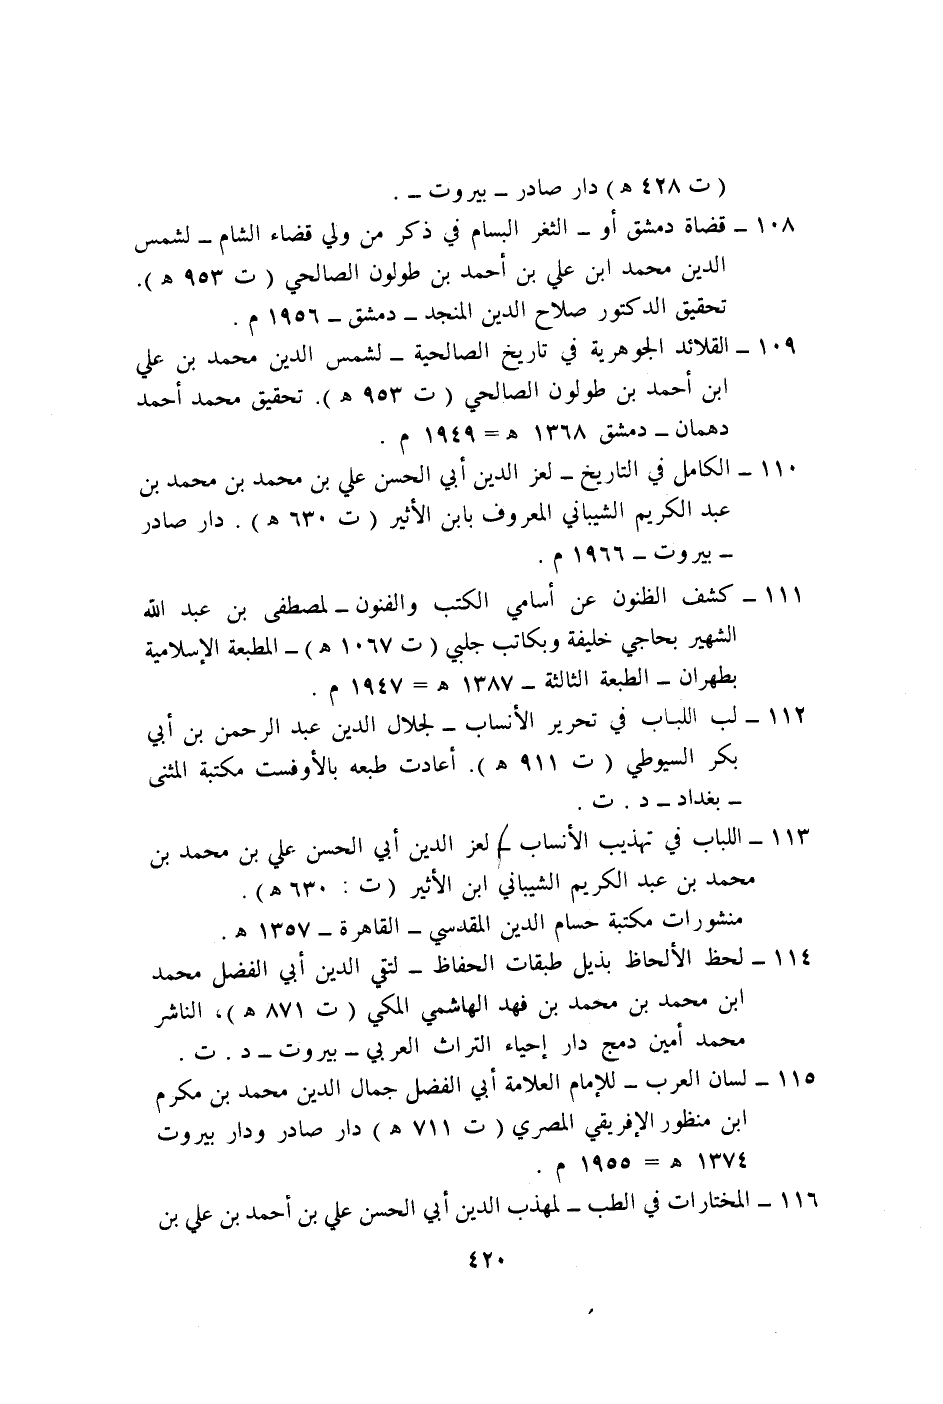 ( ت ٤٢٨ ه ) دار صادر ــ بيروت ــ .
١٠٨ ــ قضاة دمشق أو ــ الثغر البسام في ذكر من ولي قضاء الشام ــ لشمس
الدين محمد ابن علي بن أحمد بن طولون الصالحي ( ت ٩٥٣ ه ).
تحقيق الدكتور صلاح الدين المنجد ــ دمشق ــ ١٩٥٦ م .
١٠٩ ــ القلائد الجوهرية في تاريخ الصالحية ــ لشمس الدين محمد بن علي
ابن أحمد بن طولون الصالحي ( ت ٩٥٣ ه ). تحقيق محمد أحمد
دهمان ــ دمشق ١٣٦٨ ه = ١٩٤٩ م .
١١٠ ــ الكامل في التاريخ ــ لعز الدين أبي الحسن علي بن محمد بن محمد بن
عبد الكريم الشيباني المعروف بابن الأثير ( ت ٦٣٠ ه ) . دار صادر
ــ بيروت ــ ١٩٦٦ م .
١١١ ــ كشف الظنون عن أسامي الكتب والفنون ــ لمصطفى بن عبد الله
الشهير بحاجي خليفة وبكاتب جلبي ( ت ١٠٦٧ ه ) ــ المطبعة الإسلامية
بطهران ــ الطبعة الثالثة ــ ١٣٨٧ ه = ١٩٤٧ م .
١١٢ ــ لب اللباب في تحرير الأنساب ــ لجلال الدين عبد الرحمن بن أبي
بكر السيوطي ( ت ٩١١ ه ). أعادت طبعه بالأوفست مكتبة المثنى
ــ بغداد ــ د . ت .
١١٣ ــ اللباب في تهذيب الأنساب ــ لعز الدين أبي الحسن علي بن محمد بن
محمد بن عبد الكريم الشيباني ابن الأثير ( ت : ٦٣٠ ه ) .
منشورات مكتبة حسام الدين المقدسي ــ القاهرة ــ ١٣٥٧ ه .
١١٤ ــ لحظ الألحاظ بذيل طبقات الحفاظ ــ لتقي الدين أبي الفضل محمد
ابن محمد بن محمد بن فهد الهاشمي المكي ( ت ٨٧١ ه )، الناشر
محمد أمين دمج دار إحياء التراث العربي ــ بيروت ــ د . ت .
١١٥ ــ لسان العرب ــ للإمام العلامة أبي الفضل جمال الدين محمد بن مكرم
ابن منظور الإفريقي المصري ( ت ٧١١ ه ) دار صادر ودار بيروت
١٣٧٤ ه = ١٩٥٥ م .
١١٦ ــ المختارات في الطب ــ لمهذب الدين أبي الحسن علي بن أحمد بن علي بن
٤٢٠